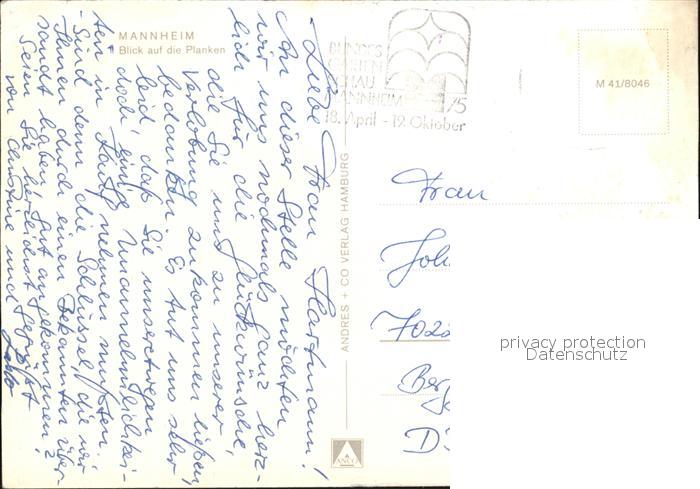 MANNHEIM
Blick auf die Planken
Liebe Frau Hartmann!
An dieser Stelle möchten
wir uns nochmals ganz herz-
lich für die Glückwünsche,
die Sie uns zu unserer
Verlobung zukommen ließen,
bedanken. Es tut uns sehr
leid, daß Sie unseretwegen
doch einige Unannehmlichkei-
ten in Kauf nehmen mußten.
- Sind denn die Schlüssel, die wir
Ihnen durch einen Bekannten über-
sandt haben, gut angekommen?
Seien Sie herzlichst gegrüßt
von Christine und
ANDRES + CO VERLAG HAMBURG
ANCO
BUNDES
GARTEN
SCHAU
MANNHEIM 75
18. April - 19. Oktober
M 41/8046
Frau
Joh
7020
Berg
D
privacy protection
Datenschutz